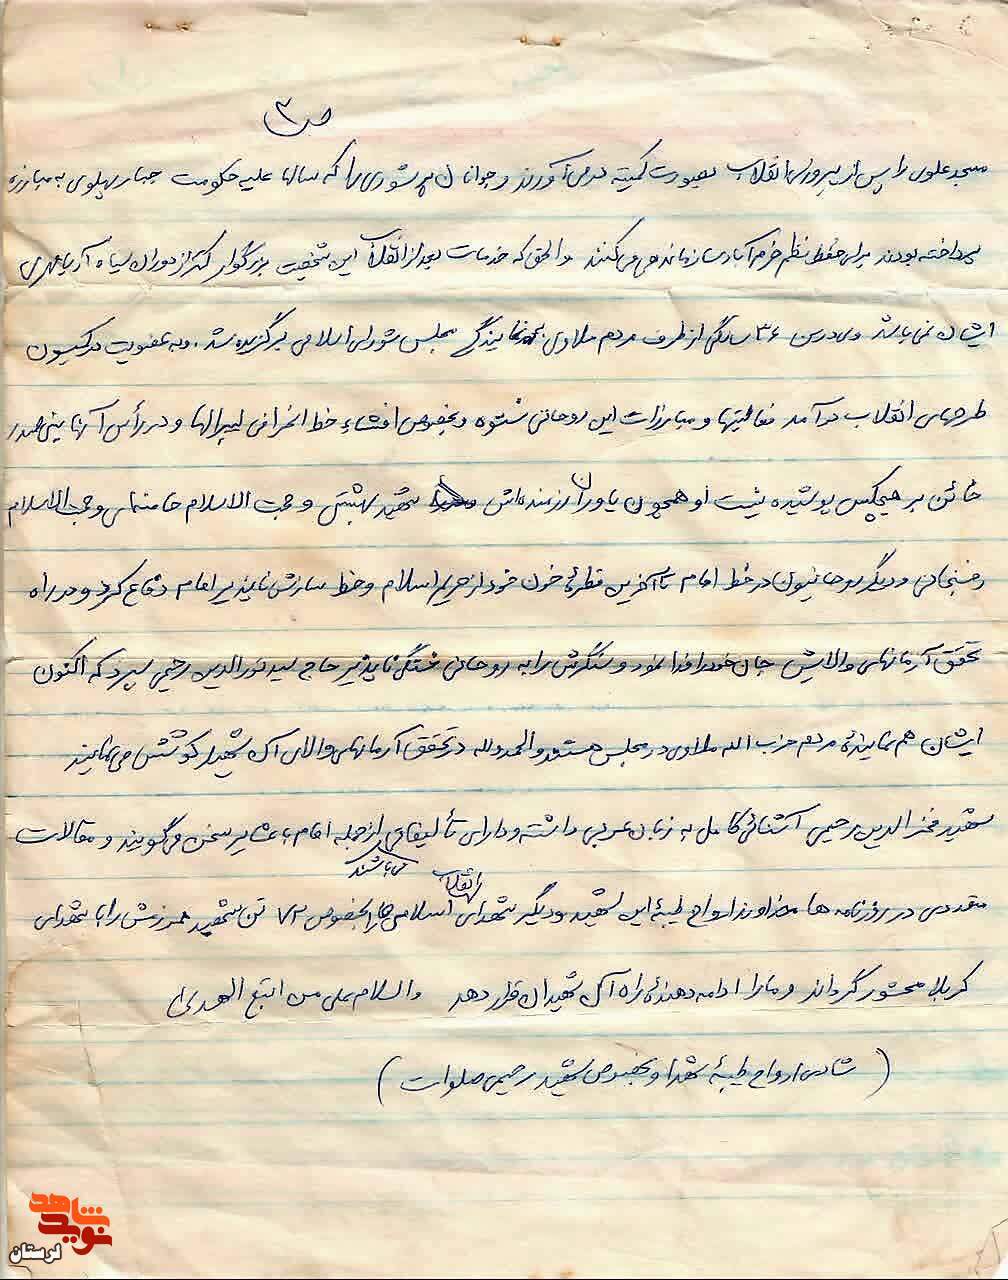 ص ۳
مسجد علوی را پس از پیروزی انقلاب بصورت کمیته درمی‌آورند و جوانان پرشوری را که سالها علیه حکومت جبار پهلوی به مبارزه
پرداخته بودند برای حفظ نظم خرم‌آباد سازماندهی می‌کنند والحق که خدمات بعد از انقلاب این شخصیت بزرگوار کمتر از دوران سیاه آریامهری
ایشان نمی‌باشد وی در سن ۳۶ سالگی از طرف مردم ملاوی به نمایندگی مجلس شورای اسلامی برگزیده شد. و به عضویت در کمیسیون
طرحهای انقلاب درآمد فعالیتها و مبارزات این روحانی نستوه و بخصوص افشاء خط انحرافی لیبرالها و در رأس آنها بنی صدر
خائن بر هیچکس پوشیده نیست او همچون یاوران رزمنده‌اش شهید بهشتی و حجت الاسلام خامنه‌ای و حجت الاسلام
رفسنجانی و دیگر روحانیون در خط امام تا آخرین قطرهٔ خون خود از حریم اسلام و خط سازش ناپذیر امام دفاع کرد و در راه
تحقق آرمانهای والایش جان خود را فدا نمود و سنگرش را به روحانی خستگی ناپذیر حاج سید نورالدین رحیمی سپرد که اکنون
ایشان هم نمایندهٔ مردم حزب الله ملاوی در مجلس هستند و الحمدلله در تحقق آرمانهای والای آن شهید کوشش می‌نمایند
شهید فخرالدین رحیمی آشنائی کامل به زبان عربی داشته و دارای تألیفاتی از جمله امام با عشایر سخن می‌گویند و مقالات
می‌باشند
متعددی در روزنامه ها خداوند ارواح طیبهٔ این شهید و دیگر شهدای انقلاب اسلامی بخصوص ۷۲ تن شهید همرزمش را با شهدای
کربلا محشور گرداند و ما را ادامه دهندهٔ راه آن شهیدان قرار دهد والسلام علی من اتبع الهدی
(شادی ارواح طیبهٔ شهدا و بخصوص شهید رحیمی صلوات)
نوید شاهد
لرستان